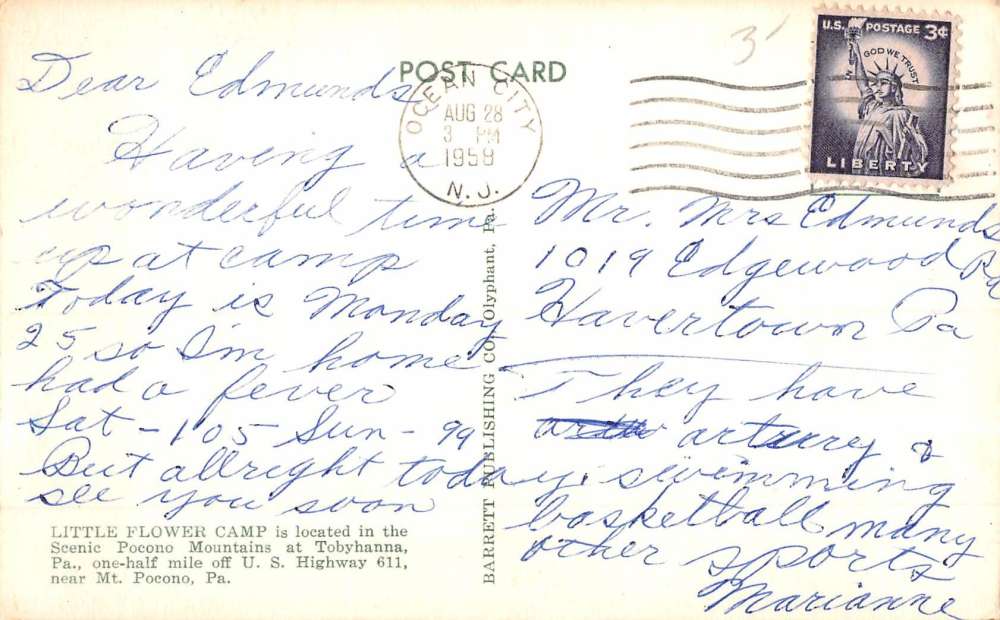 POST CARD
3
OCEAN CITY
AUG 28
3 PM
1958
N. J.
U.S. POSTAGE 3¢
IN GOD WE TRUST
LIBERTY
Dear Edmunds
Having a
wonderful time
up at camp
Today is Monday
25 so I'm home
had a fever
Sat - 105 Sun - 99
But allright today.
see you soon
LITTLE FLOWER CAMP is located in the
Scenic Pocono Mountains at Tobyhanna,
Pa., one-half mile off U. S. Highway 611,
near Mt. Pocono, Pa.
BARRETT PUBLISHING CO. Olyphant, Pa.
Mr. Mrs Edmunds
1019 Edgewood Rd
Havertown Pa
They have
artury &
swimming
basketball many
other sports
Marianne